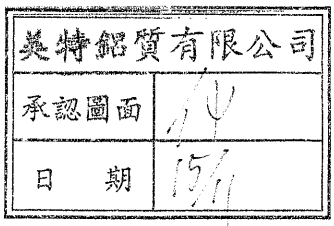 英特鋁質有限公司
承認圖面
日 期 15/11